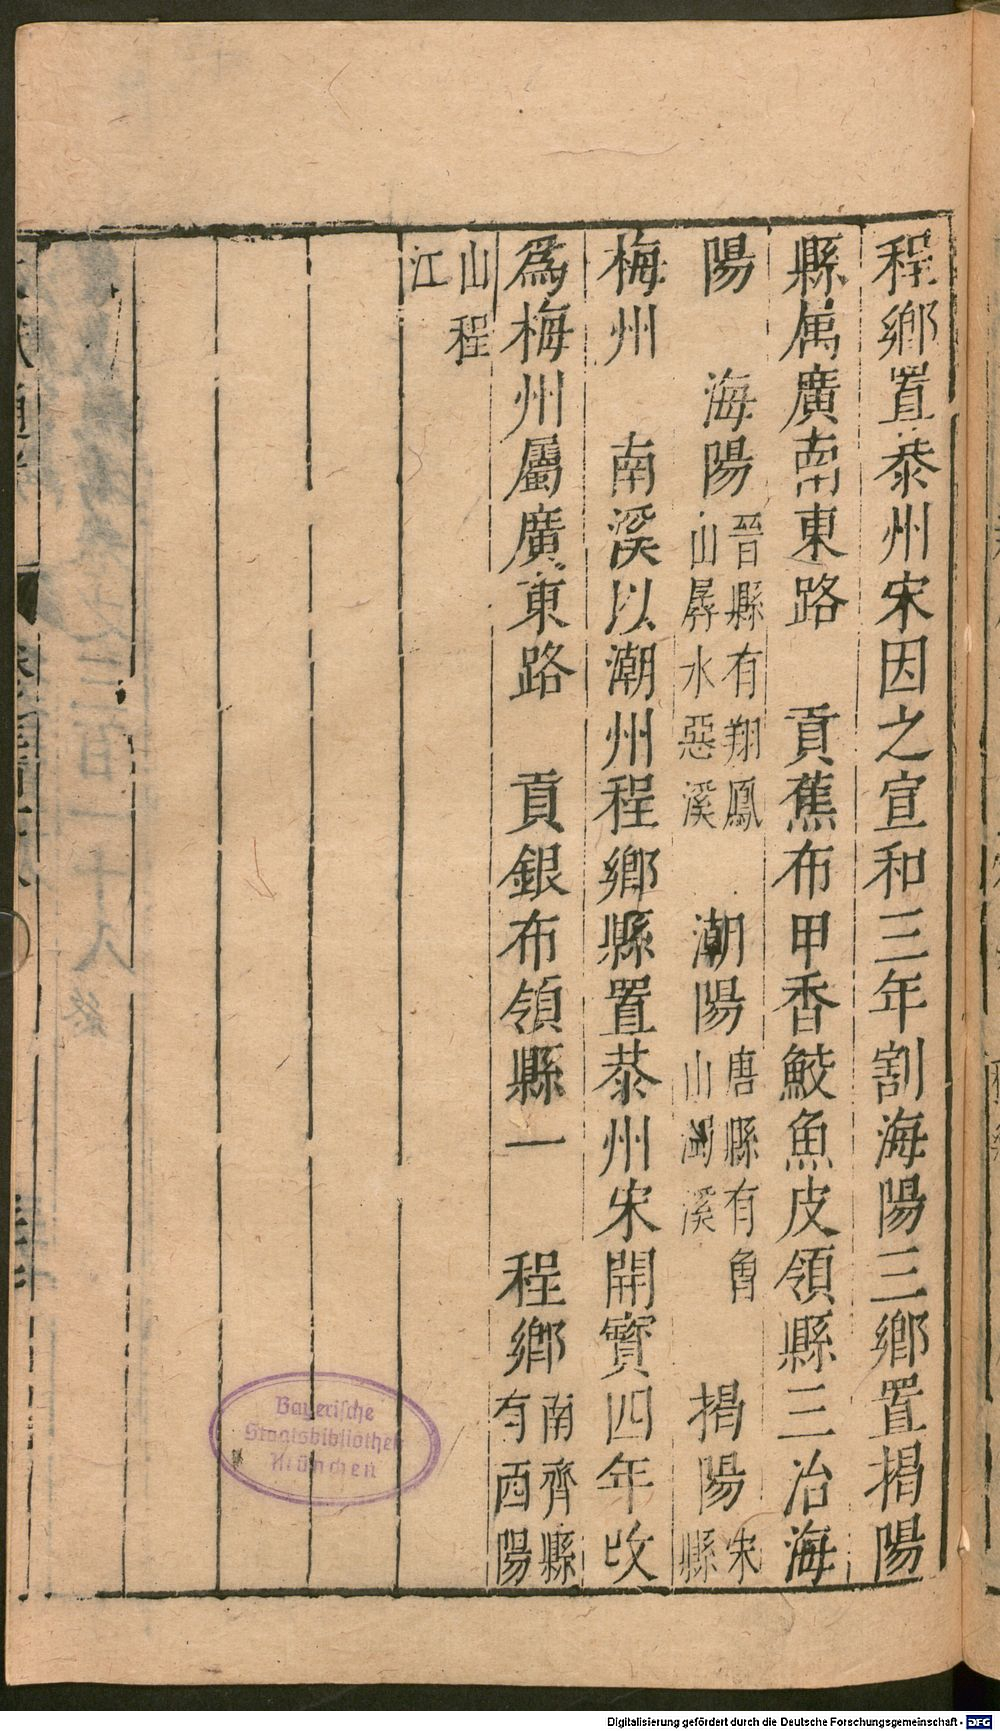 程鄉置㳟州宋因之宣和三年割海陽三鄉置揭陽
縣属廣南東路　貢蕉布甲香鮫魚皮領縣三治海
陽　海陽晉縣有翔鳳山㟓水惡溪　潮陽唐縣有魯山溪　揭陽宋縣
梅州　南漢以潮州程鄉縣置㳟州宋開寳四年改
爲梅州屬廣東路　貢銀布領縣一　程鄉南齊縣有西陽
山程江
Bayerische
Staatsbibliothek
München
Digitalisierung gefördert durch die Deutsche Forschungsgemeinschaft - DFG